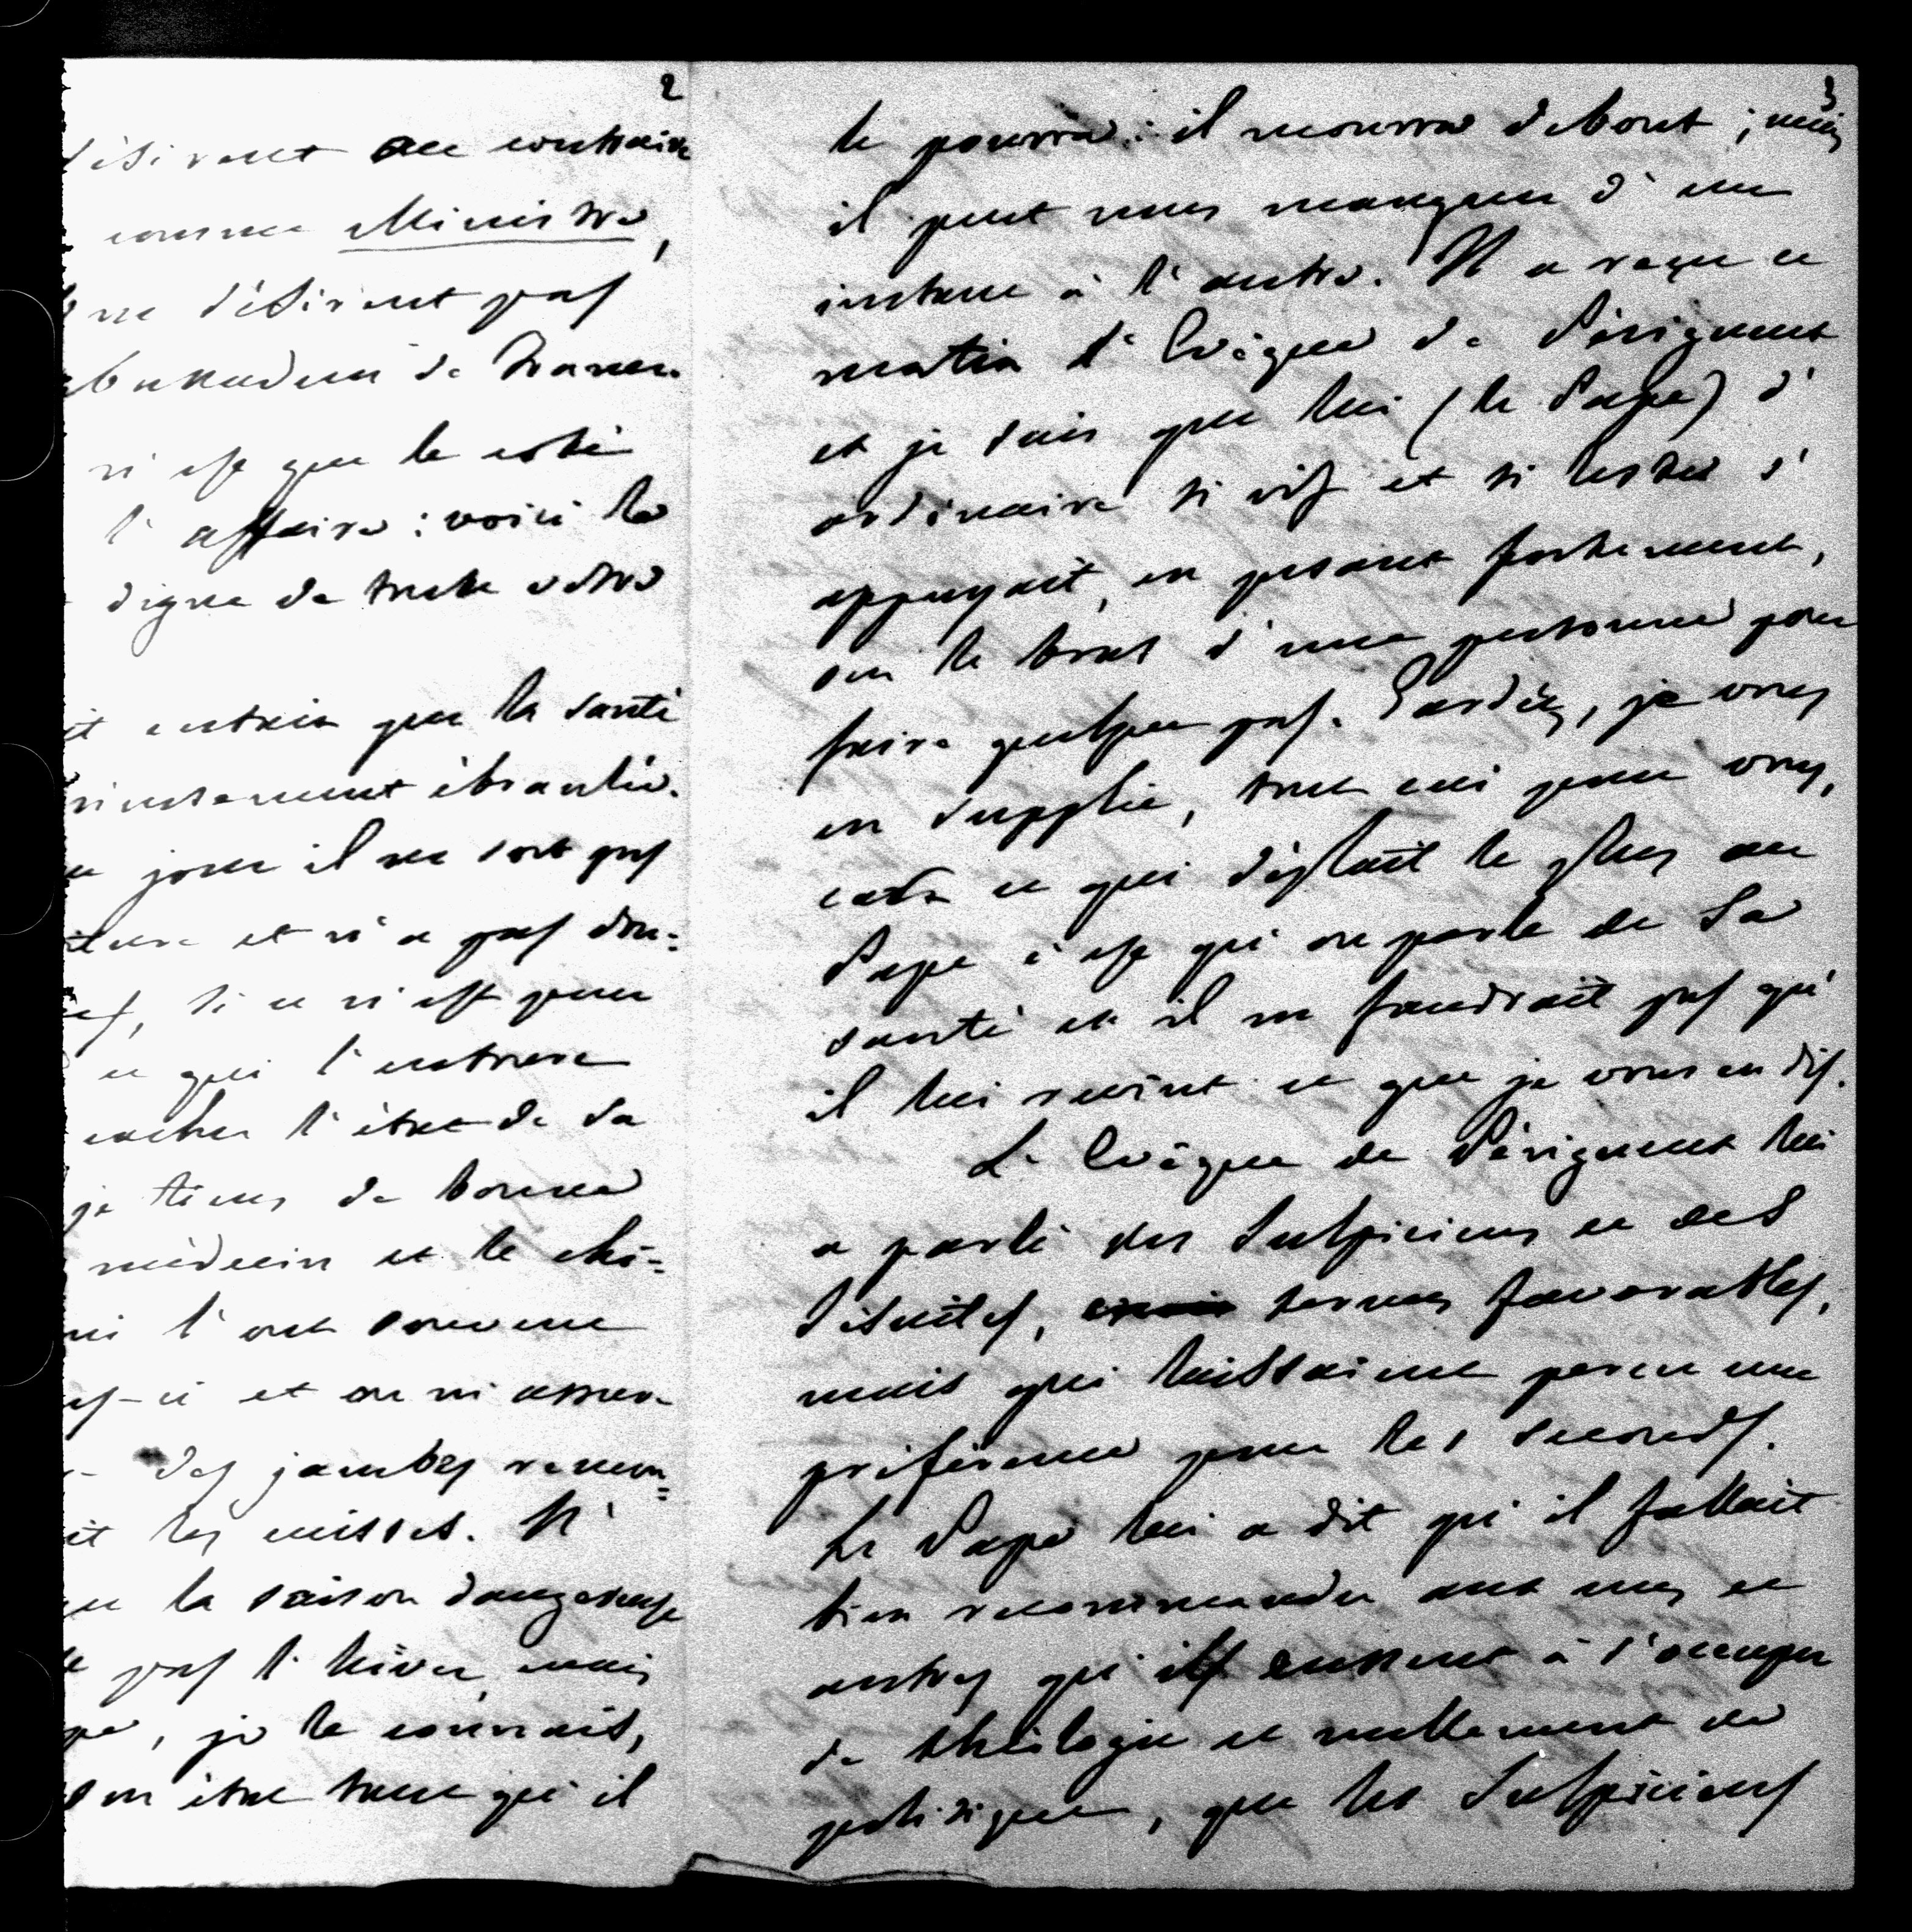 2
désirent au contraire
comme Ministre,
ne désirent pas
de France.
n'est que le côté
l'affaire : voici la
digne de toute votre
certain que la santé
ébranlée.
jour il ne sort pas
et n'a pas don=
si ce n'est pour
ce qui l'entoure
cacher l'état de sa
je tiens de bonne
médecin et le chi=
l'ont
-ci et on m'assure
des jambes remon=
it les cuisses. N'
la saison dangereuse
pas l'hiver, mais
, je le connais,
son état tant qu'il
3
le pourra : il mourra debout ; mais
il peut nous manquer d'un
instant à l'autre. Il a reçu ce
matin l'Evêque de Périgueux
et je sais que lui (le Pape) d'
ordinaire si vif et si leste s'
appuyait, en pesant fortement,
sur le bras d'une personne pour
faire quelques pas. Gardez, je vous
en supplie, tout ceci pour vous,
car ce qui déplait le plus au
Pape c'est qu'on parle de Sa
santé et il ne faudrait pas qu'
il lui revînt ce que je vous en dis.
L'Evêque de Périgueux lui
a parlé des Sulpiciens et des
Jésuites, termes favorables,
mais qui laissaient percer une
préférence pour les seconds.
Le Pape lui a dit qu'il fallait
bien recommander aux uns et
autres qu'ils eussent à s'occuper
de théologie et nullement de
politique, que les Sulpiciens